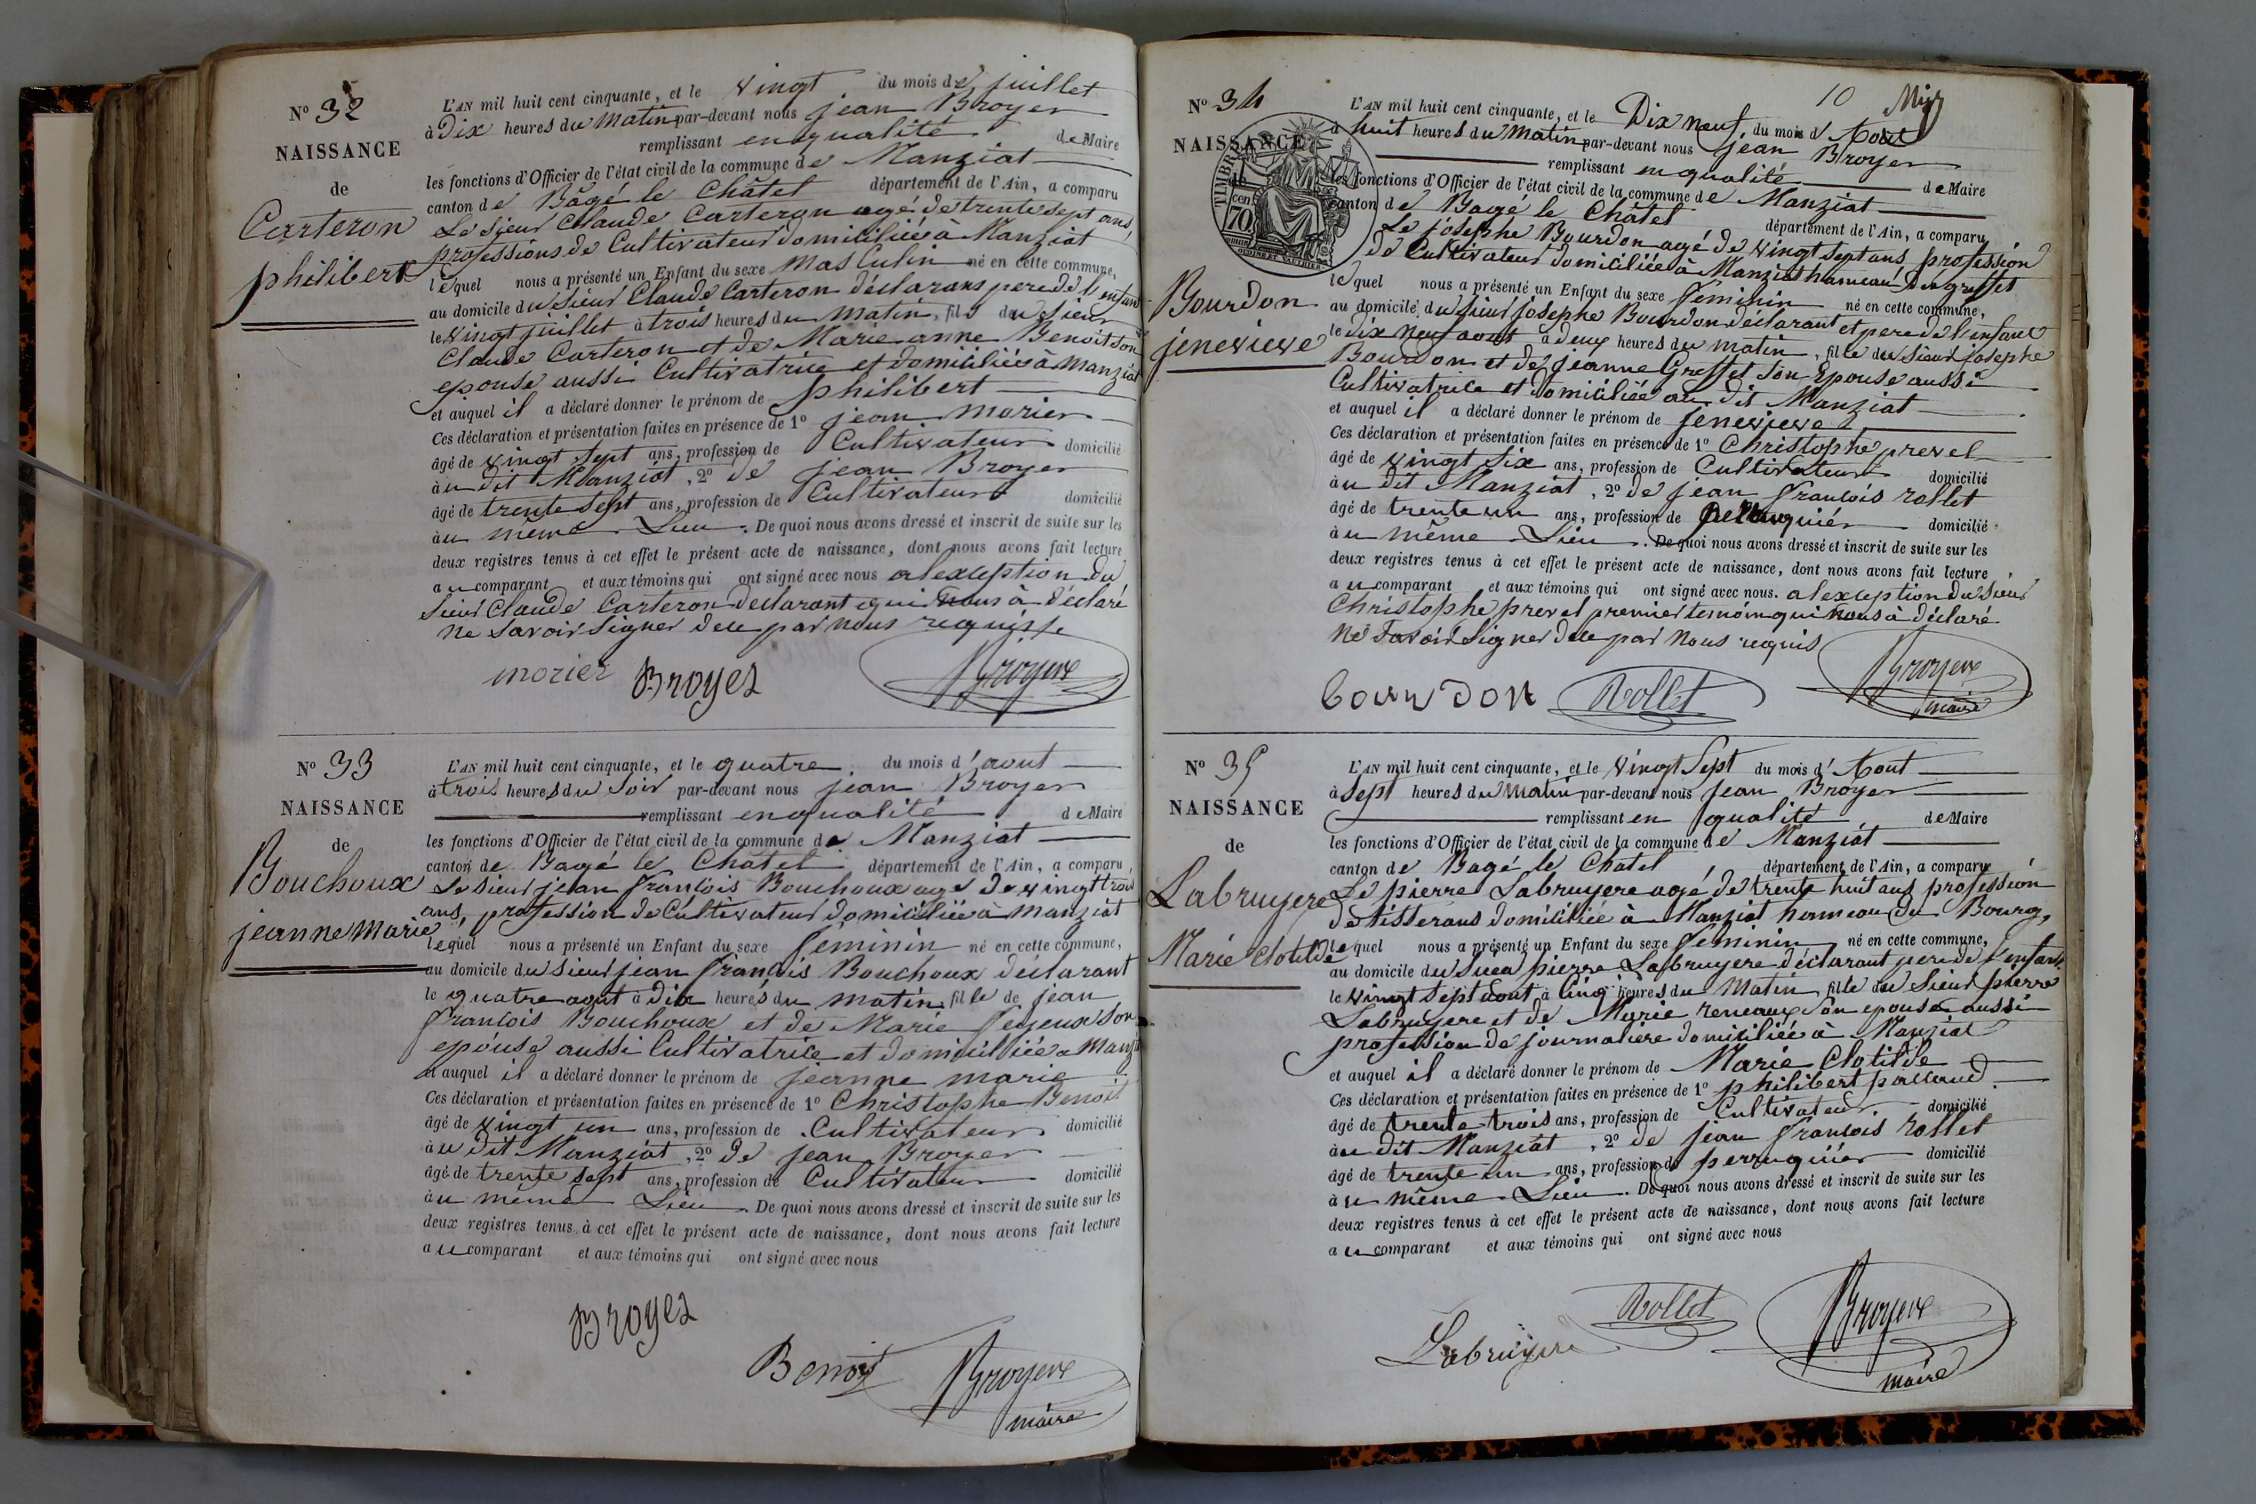 N° 32
NAISSANCE
de
Carteron
philibert
L'AN mil huit cent cinquante, et le vingt du mois de juillet
à Dix heures du matin par-devant nous jean Broyer
remplissant en qualité de Maire
les fonctions d'Officier de l'état civil de la commune de Manziat
canton de Bâgé le Châtel département de l'Ain, a comparu
Le sieur Claude Carteron agé de trente sept ans,
professions de Cultivateur domiciliée à Manziat
lequel nous a présenté un Enfant du sexe Masculin né en cette commune,
au domicile du sieur Claude Carteron déclarans pere de l'enfant
le vingt juillet à trois heures du matin, fils du sieur
Claude Carteron et de Marie anne Benoit son
epouse aussi Cultivatrice et domiciliée à Manziat
et auquel il a déclaré donner le prénom de philibert
Ces déclaration et présentation faites en présence de 1° jean morier
âgé de vingt sept ans, profession de Cultivateur domicilié
au dit Manziat, 2° de jean Broyer
âgé de trente sept ans, profession de Cultivateur domicilié
au même Lieu. De quoi nous avons dressé et inscrit de suite sur les
deux registres tenus à cet effet le présent acte de naissance, dont nous avons fait lecture
au comparant et aux témoins qui ont signé avec nous a lexception du
Sieur Claude Carteron declarant qui nous à déclaré
ne savoir signer dece par nous requis
morier Broyer Broyer
N° 33
NAISSANCE
de
Bouchoux
jeanne marie
L'AN mil huit cent cinquante, et le quatre du mois d'aout
à trois heures du soir par-devant nous jean Broyer
remplissant en qualité de Maire
les fonctions d'Officier de l'état civil de la commune de Manziat
canton de Bagé le Châtel département de l'Ain, a comparu
Le sieur jean françois Bouchoux agé de vingt trois
ans, profession de Cultivateur domiciliée à manziat
lequel nous a présenté un Enfant du sexe féminin né en cette commune,
au domicile du sieur jean françois Bouchoux déclarant
le quatre aout à dix heures du matin, fille de jean
françois Bouchoux et de Marie son
epouse aussi Cultivatrice et domiciliée a
et auquel il a déclaré donner le prénom de jeanne marie
Ces déclaration et présentation faites en présence de 1° Christophe Benoit
âgé de vingt un ans, profession de Cultivateur domicilié
au dit Manziat, 2° de jean Broyer
âgé de trente sept ans, profession de Cultivateur domicilié
au même Lieu. De quoi nous avons dressé et inscrit de suite sur les
deux registres tenus à cet effet le présent acte de naissance, dont nous avons fait lecture
au comparant et aux témoins qui ont signé avec nous
Broyer
Benoit Broyer
maire
10
N° 34
NAISSANCE
de
TIMBRE
cen
70
Bourdon
jenevieve
L'AN mil huit cent cinquante, et le Dix neuf, du mois d'Aout
à huit heures du matin par-devant nous jean Broyer
remplissant en qualité de Maire
les fonctions d'Officier de l'état civil de la commune de Manziat
canton de Bagé le Châtel département de l'Ain, a comparu
Le josephe Bourdon agé de vingt sept ans profession
de Cultivateur domiciliée à Manziat hameau de greffet
lequel nous a présenté un Enfant du sexe feminin né en cette commune,
au domicile du sieur josephe Bourdon déclarant et pere de l'enfant
le dix neuf aout à deux heures du matin, fille du sieur josephe
Bourdon et de jeanne Greffet son Epouse aussi
Cultivatrice et domiciliée au dit Manziat
et auquel il a déclaré donner le prénom de jenevieve
Ces déclaration et présentation faites en présence de 1° Christophe prevel
âgé de vingt six ans, profession de Cultivateur domicilié
au dit Manziat, 2° de jean francois rollet
âgé de trente un ans, profession de perruquiér domicilié
au même Lieu. De quoi nous avons dressé et inscrit de suite sur les
deux registres tenus à cet effet le présent acte de naissance, dont nous avons fait lecture
au comparant et aux témoins qui ont signé avec nous. a lexception du sieur
Christophe prevel premier temoin qui nous à déclaré
ne savoir signer dece par nous requis
bourdon Rollet Broyer
maire
N° 35
NAISSANCE
de
Labruyere
Marie clotilde
L'AN mil huit cent cinquante, et le vingt Sept du mois d'Aout
à Sept heures du matin par-devant nous jean Broyer
remplissant en qualité de Maire
les fonctions d'Officier de l'état civil de la commune de Manziat
canton de Bagé le Chatel département de l'Ain, a comparu
Le pierre Labruyere agé de trente huit ans profession
de tisserans domiciliée à Manziat hameau du Bourg,
lequel nous a présenté un Enfant du sexe feminin né en cette commune,
au domicile du pierre Labruyere déclarant pere de l'enfant
le vingt sept aout à cinq heures du matin, fille du sieur pierre
Labruyere et de Marie reneaux son epouse aussi
profession de journaliere domiciliée à Manziat
et auquel il a déclaré donner le prénom de Marie Clotilde
Ces déclaration et présentation faites en présence de 1° philibert
âgé de trente trois ans, profession de Cultivateur domicilié
au dit Manziat, 2° de jean francois rollet
âgé de trente un ans, profession de perruquiér domicilié
au même Lieu. De quoi nous avons dressé et inscrit de suite sur les
deux registres tenus à cet effet le présent acte de naissance, dont nous avons fait lecture
au comparant et aux témoins qui ont signé avec nous
Labruyere Rollet Broyer
maire